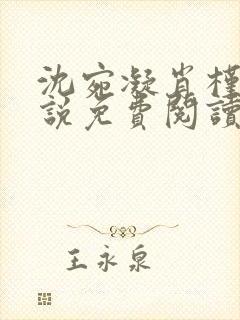 沈宛凝肖槿
說免費閱讀
王永泉